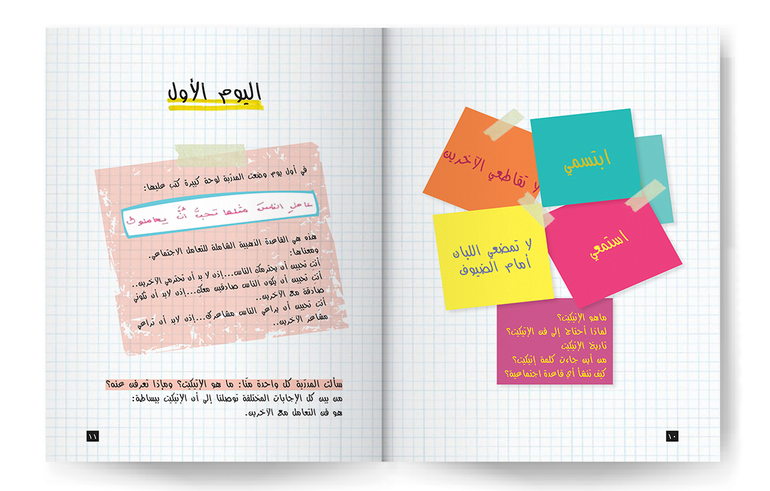 لا تقاطعي الآخرين
ابتسمي
لا تمضغي اللبان
أمام الضيوف
استمعي
ما هو الإتيكيت؟
لماذا أحتاج إلى فن الإتيكيت؟
تاريخ الإتيكيت
من أين جاءت كلمة إتيكيت؟
كيف تنشأ أي قاعدة اجتماعية؟
١٠
اليوم الأول
في أول يوم وضعت المدرّبة لوحة كبيرة كتب عليها:
عاملي الناسَ مثلما تحبّ أنْ يعاملوك
هذه هي القاعدة الذهبية الشاملة للتعامل الاجتماعي.
ومعناها:
أنت تحبين أن يحترمك الناس...إذن لا بد أن تحترمي الآخرين..
أنت تحبين أن يكون الناس صادقين معك...إذن لا بد أن تكوني
صادقة مع الآخرين..
أنت تحبين أن يراعي الناس مشاعرك...إذن لابد أن تراعي
مشاعر الآخرين..
سألت المدرّبة كل واحدة منّا: ما هو الإتيكيت؟ وماذا تعرفن عنه؟
من بين كل الإجابات المختلفة توصلنا إلى أن الإتيكيت ببساطة:
هو فن التعامل مع الآخرين.
١١